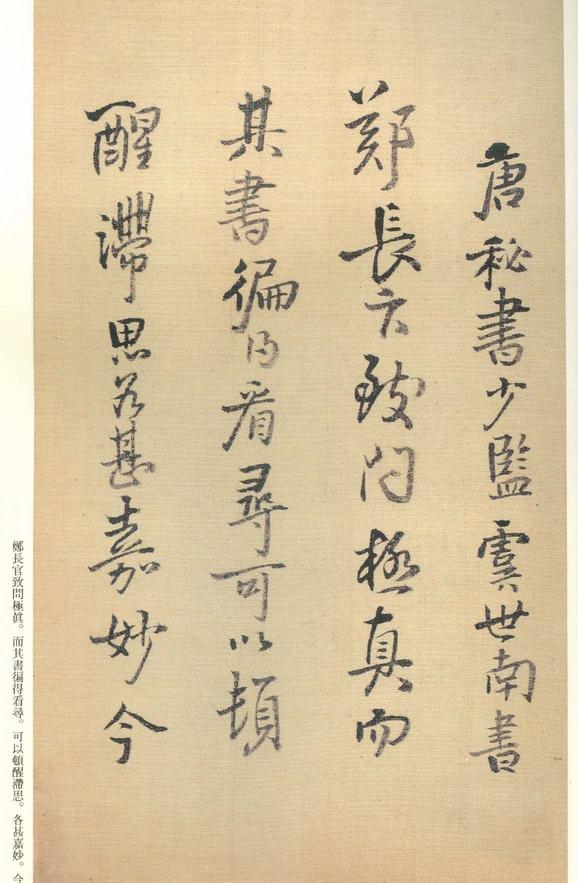 唐秘書少監虞世南書
鄭長官致問極真而
其書徧得看尋可以頓
醒滯思各甚嘉妙今
鄭長官致問極眞。而其書徧得看尋。可以頓醒滯思。各甚嘉妙。今